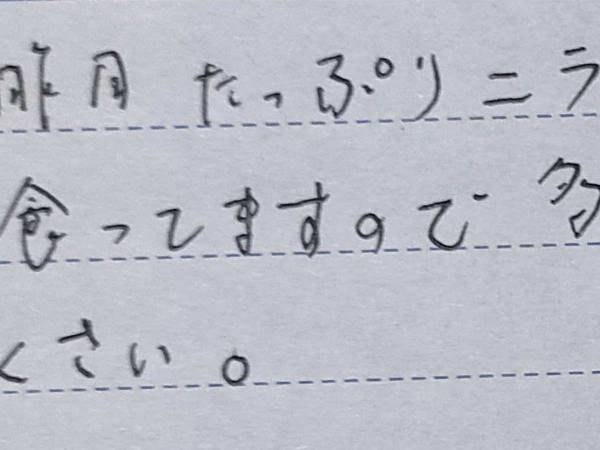 昨日 たっぷりニラ
食ってますので 多
ください。